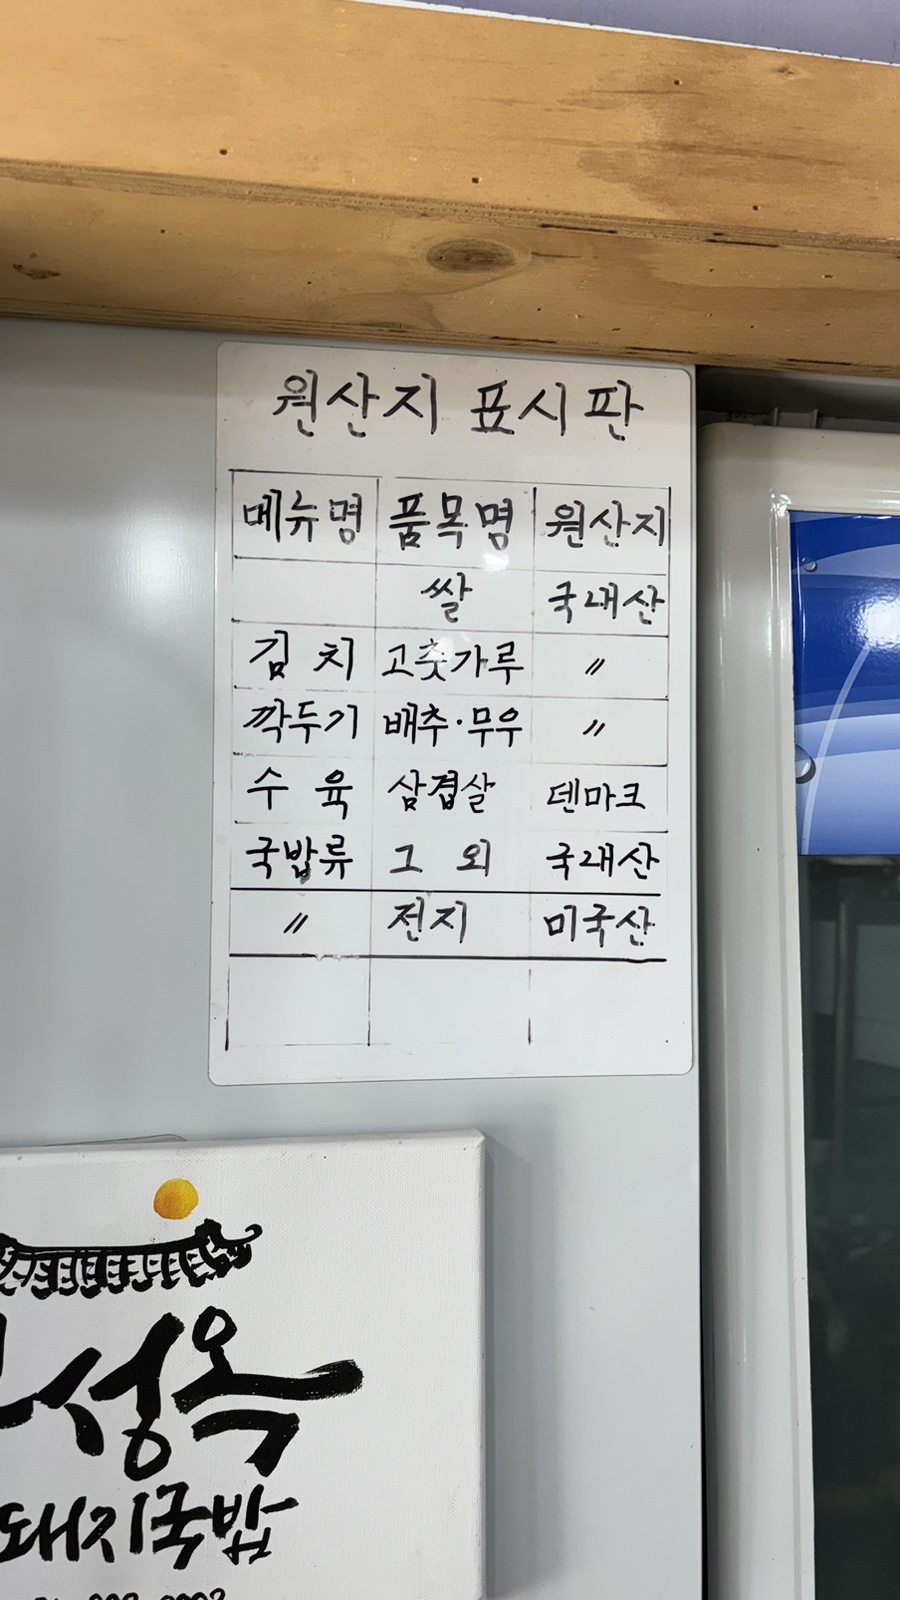 원산지 표시판
메뉴명 품목명 원산지
쌀 국내산
김치 고춧가루 〃
깍두기 배추·무우 〃
수육 삼겹살 덴마크
국밥류 그외 국내산
〃 전지 미국산
성옥
돼지국밥